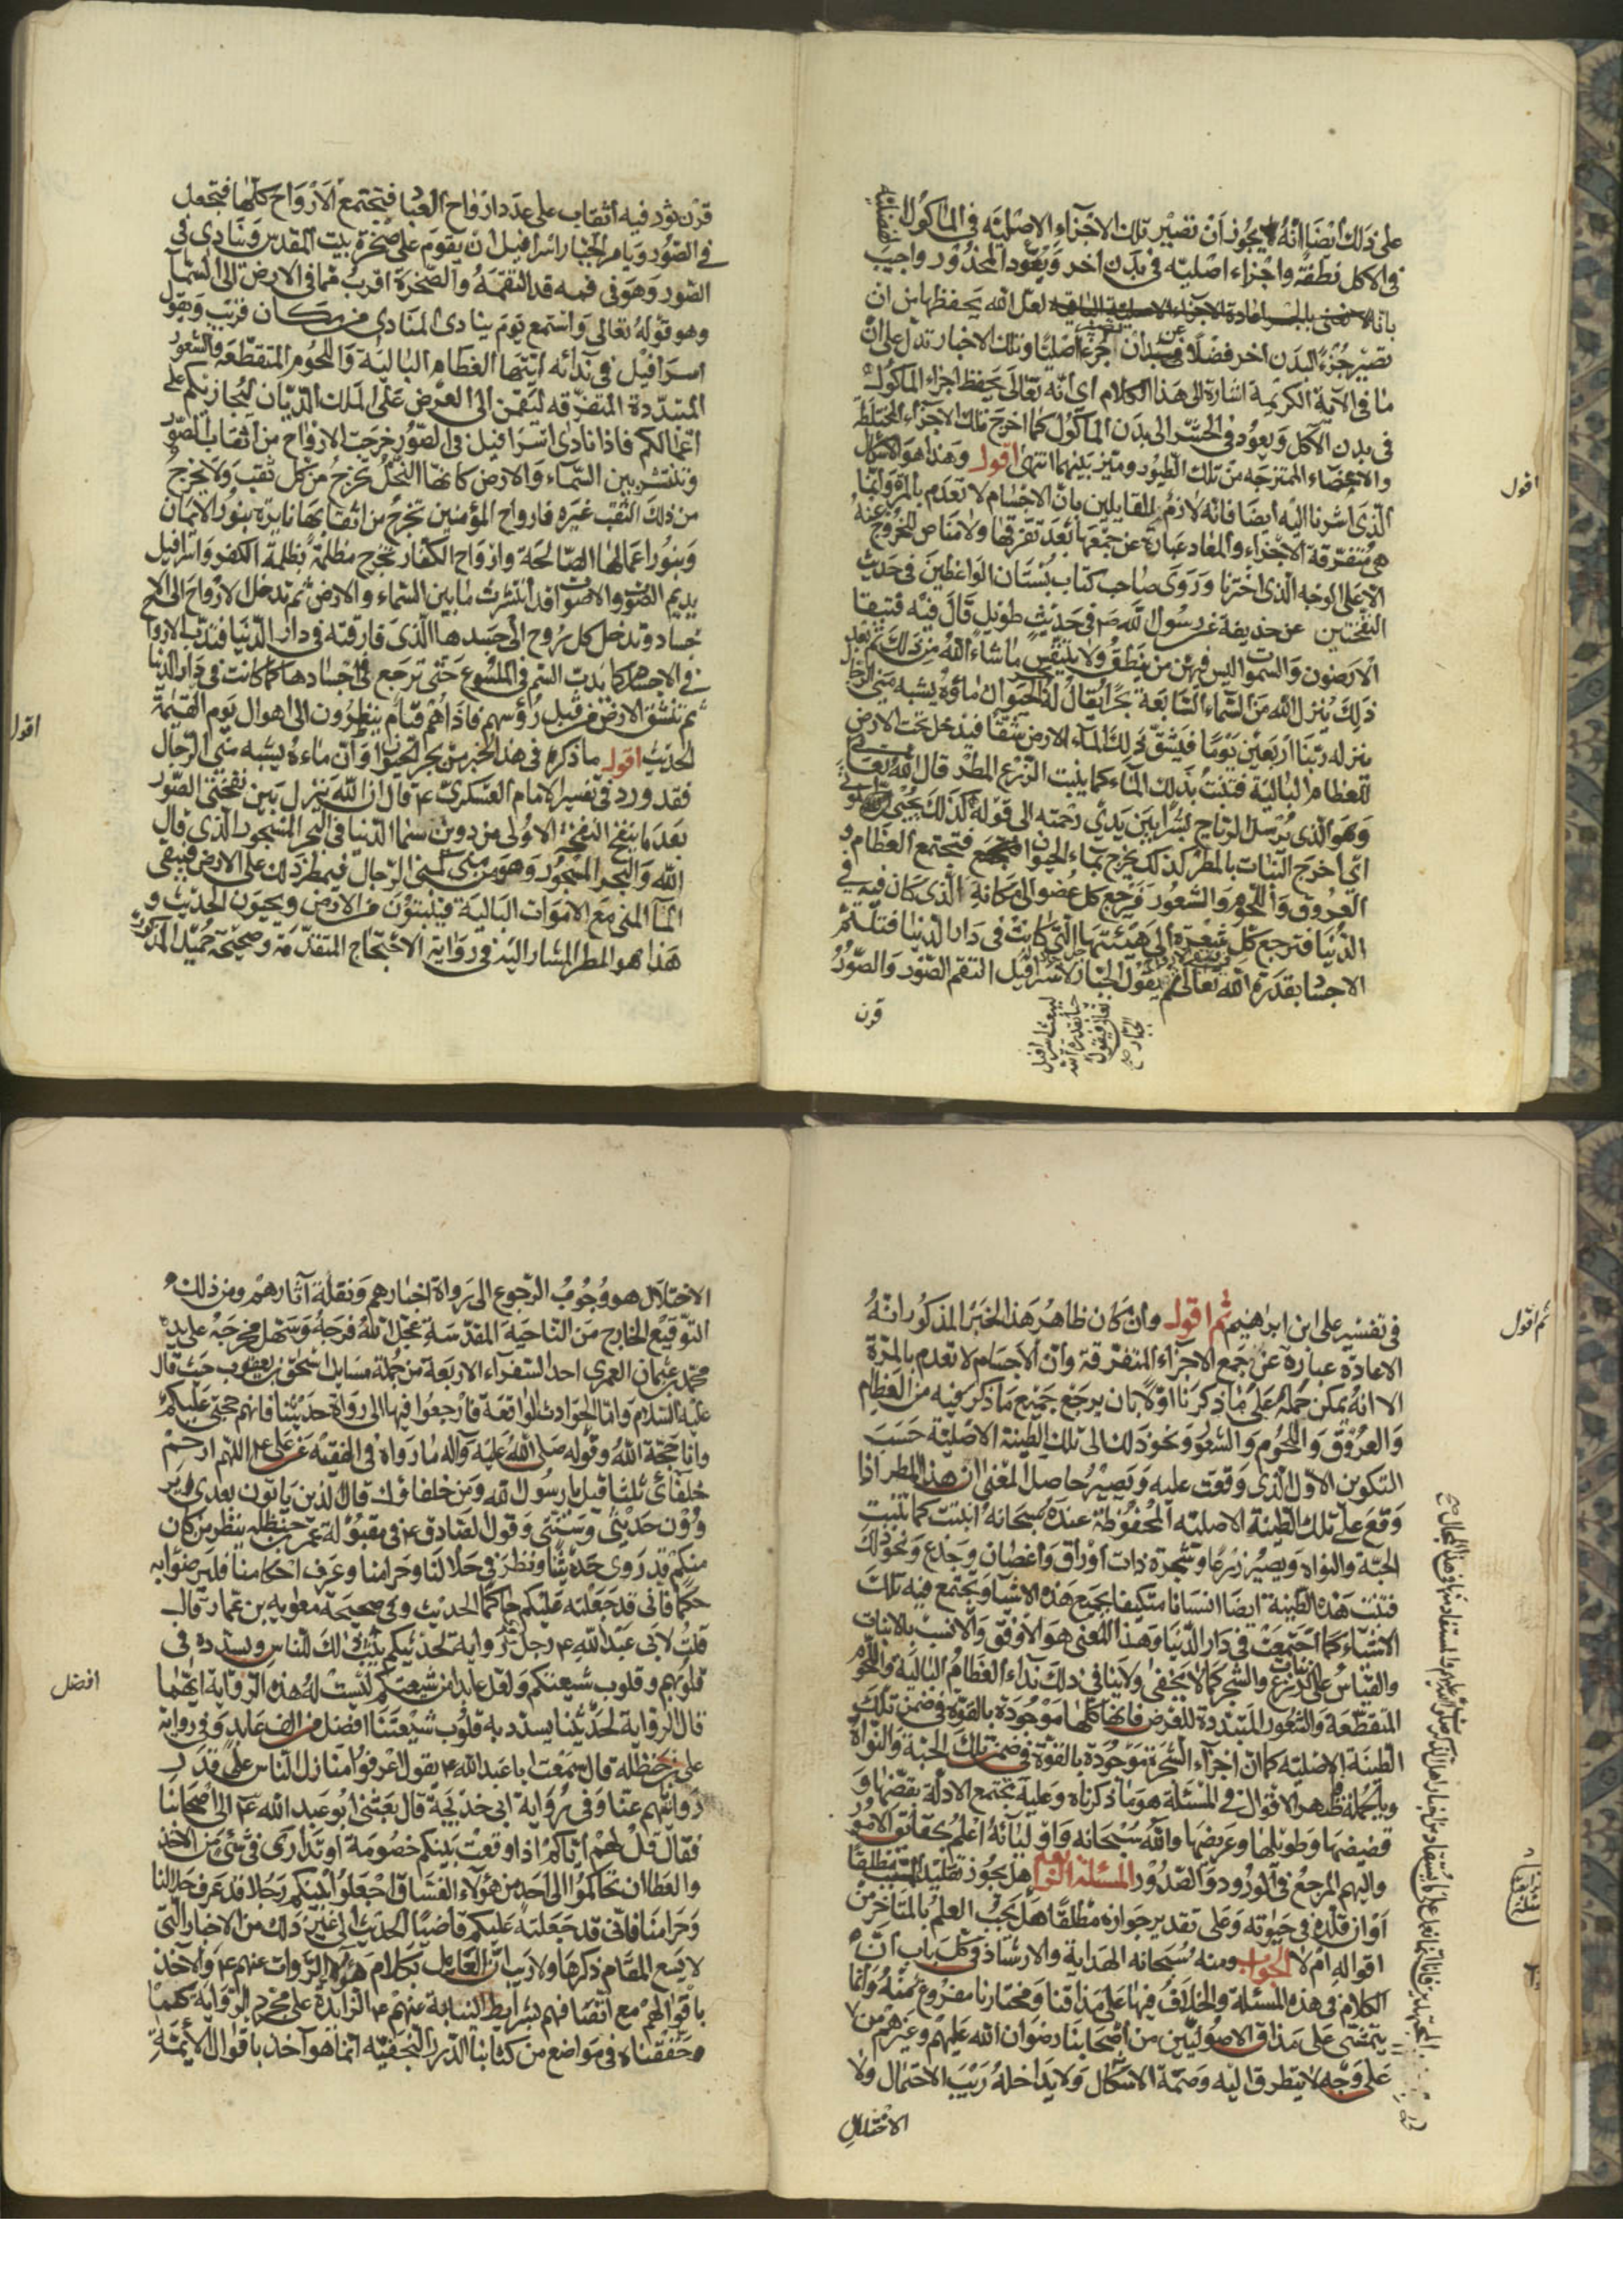 على ذلك ايضا انه لا يجوز ان تصير تلك الاجزاء الاصليه في الماكول الفضليه
في الاكل نطفة واجزاء اصليه في بدن اخر ويعود المحذور واجيب
بانه لعل الله يحفظها من ان
تصير جزء البدن اخر فضلا عن ان تصير جزء اصليا وتلك الاخبار تدل على ان
ما في الآية الكريمة اشارة الى هذا الكلام اي انه تعالى يحفظ اجزاء الماكول
في بدن الآكل ويعود في الحشر الى بدن الماكول كما اخرج تلك الاجزاء المختلطة
والاعضاء الممتزجه من تلك الطيور وميز بينهما انتهى اقول وهذا هو الاشكال
الذي اشرنا اليه أيضا فانه لازم للقايلين بان الاجسام لا تعدم بالمرة وانما
هي متفرقة الاجزاء والمعاد عبارة عن جمعها بعد تفرقها ولا مناص للخروج عنه
الا على الوجه الذي اخترنا وروى صاحب كتاب بستان الواعظين في حديث
النفختين عن حذيفة عن رسول الله ص في حديث طويل قال فيه فتبقا
الارضون والسموات ليس فيهن من ينطق ولا يتنفس ما شاء الله من ذلك ثم بعد
ذلك ينزل الله من السماء السابعة بحرا يقال له الحيوان ماؤه يشبه مني الرجال
منزله ربنا اربعين يوما فيشق ذلك الماء الارض شقا فيدخل تحت الارض
للعظام البالية فتنبت بذلك الماء كما ينبت الزرع المطر قال الله تعالى
وهو الذي يرسل الرياح بشرا بين يدي رحمته الى قوله كذلك يحيي الموتى
اي أخرج النبات بالمطر كذلك يخرج بماء الحيوان فتجتمع العظام و
العروق واللحوم والشعور فيرجع كل عضو الى مكانه الذي كان فيه في
الدنيا فترجع كل شعرة الى هيئتها التي كانت في دار الدنيا فتلتئم
الاجسا بقدرة الله تعالى ثم يقول الجبار لاسرافيل التقم الصور والصور
قرن
اقول
قرن نور فيه أثقاب على عدد ارواح العباد فتجتمع الأرواح كلها فتجعل
في الصور ويامر الجبار اسرافيل ان يقوم على صخرة بيت المقدس وينادي في
الصور وهو في فمه قد التقمه والصخرة اقرب مما في الارض الى السماء
وهو قوله تعالى واستمع يوم ينادي المنادي من مكان قريب ويقول
اسرافيل في ندائه ايتها العظام البالية واللحوم المتقطعه والشعور
المتبددة المتفرقه لتقمن الى العرض على الملك الديان ليجازيكم على
اعمالكم فاذا نادى اسرافيل في الصور خرجت الارواح من أثقاب الصور
وتنتشر بين السماء والارض كانها النحل تخرج من كل ثقب ولا يخرج
من ذلك الثقب غيره فارواح المؤمنين تخرج من اثقابها نايرة بنور الايمان
وبنور اعمالها الصالحة وارواح الكفار تخرج مظلمة بظلمة الكفر واسرافيل
يديم الصوت والاصوات قد انتشرت ما بين السماء والارض ثم تدخل الارواح الى الا
جساد وتدخل كل روح الى جسدها الذي فارقته في دار الدنيا فتدب الارواح
في الاجساد كما يدب السم في الملسوع حتى ترجع في اجسادها كما كانت في دار الدنيا
ثم تنشق الارض من قبل رؤسهم فاذا هم قيام ينظرون الى اهوال يوم القيمة
الحديث اقول ما ذكره في هذا الخبر من بحر الحيوان وان ماءه يشبه مني الرجال
فقد ورد في تفسير الامام العسكري ع قال ان الله ينزل بين نفختي الصور
بعد ما ينفخ النفخة الاولى من دوين سما الدنيا في البحر المسجور الذي قال
الله والبحر المسجور وهو من مني كمني الرجال فيمطر ذلك على الارض فيبقى
الماء المني مع الاموات البالية فينبتون من الارض ويحيون الحديث و
هذا هو المطر المشار اليه في رواية الاحتجاج المتقدمة وصحيحة جميل المذكورة
اقول
في تفسير علي ابن ابراهيم ثم اقول وان كان ظاهر هذا الخبر المذكور انه
الاعادة عبارة عن جمع الاجزاء المتفرقة وان الاجسام لا تعدم بالمرة
الا انه يمكن حمله على ما ذكرنا اولا بان يرجع جميع ما ذكر فيه من العظام
والعروق واللحوم والشعور ونحو ذلك الى تلك الطينة الاصلية حسب
التكوين الاول الذي وقعت عليه ويصير حاصل المعنى ان هذا المطر اذا
وقع على تلك الطينة الاصليه المحفوظة عنده سبحانه انبتت كما تنبت
الحبة والنواة ويصير زرعا وشجرة ذات اوراق واغصان وجذع ونحو ذلك
فتنبت هذه الطينة ايضا انسانا متكيفا بجميع هذه الاشيا ويجتمع فيه تلك
الاشياء كما اجتمعت في دار الدنيا وهذا المعنى هو الاوفق والانسب بالانبات
والقياس على نبات الزرع والشجر كما لا يخفى ولا ينافي ذلك نداء العظام البالية واللحوم
المتقطعة والشعور المتبددة للعرض فانها كلها موجودة بالقوة في ضمن تلك
الطينة الاصليه كما ان اجزاء الشجرة موجودة بالقوة في ضمن تلك الحبة والنواة
وبالجملة فاظهر الاقوال في المسئلة هو ما ذكرناه وعليه تجتمع الادلة بقضها و
قضيضها وطويلها وعريضها والله سبحانه واوليائه اعلم بحقائق الامور
واليهم المرجع في الورود والصدور المسئلة الرابعه هل يجوز تقليد الميت مطلقا
أو ان قلده في حيوته وعلى تقدير جوازه مطلقا هل يجب العلم بالمتاخر من
اقواله ام لا الجواب ومنه سبحانه الهداية والارشاد في كل باب ان
الكلام في هذه المسئلة والخلاف فيها على مذاقنا ومختارنا مفروغ عنه وانما
يتمشى على مذاق الاصوليين من أصحابنا رضوان الله عليهم وغيرهم من
على وجه لا يتطرق اليه وصمة الاشكال ولا يداخله ريب الاحتمال ولا
الاختلال
ثم اقول
الاختلال هو وجوب الرجوع الى رواة اخبارهم ونقلة آثارهم ومن ذلك
التوقيع الخارج من الناحية المقدسة عجل الله فرجه وسهل مخرجه على يد
محمد بن عثمان العمري احد السفراء الاربعة من جملة مسايل اسحق بن يعقوب حيث قال
عليه السلام واما الحوادث الواقعة فارجعوا فيها الى رواة حديثنا فانهم حجتي عليكم
وانا حجة الله وقوله صلى الله عليه وآله ما رواه في الفقيه عن علي ع اللهم ارحم
خلفائي ثلثا قيل يا رسول الله ومن خلفاؤك قال الذين ياتون بعدي وير
وون حديثي وسنتي وقول الصادق ع في مقبولة عمر بن حنظله ينظر من كان
منكم قد روى حديثنا ونظر في حلالنا وحرامنا وعرف احكامنا فليرضوا به
حكما فاني قد جعلته عليكم حاكما الحديث وفي صحيحة معويه بن عمار قال
قلت لأبي عبد الله ع رجل راوية لحديثكم يبث ذلك للناس ويسدده في
قلوبهم وقلوب شيعتكم ولعل عابدا من شيعتكم ليست له هذه الرواية ايهما
قال الرواية لحديثنا يسدد به قلوب شيعتنا افضل من الف عابد وفي رواية
علي بن حنظله قال سمعت ابا عبد الله ع يقول اعرفوا منازل الناس على قدر
روايتهم عنا وفي رواية ابي خديجة قال بعثني ابو عبد الله ع الى اصحابنا
فقال قل لهم اياكم اذا وقعت بينكم خصومة او تداري في شيء من الاخذ
والعطا ان تحاكموا الى احد من هؤلاء الفساق اجعلوا بينكم رجلا قد عرف حلالنا
وحرامنا فاني قد جعلته عليكم قاضيا الحديث الى غير ذلك من الاخبار التي
لا يسع المقام ذكرها ولا ريب ان العامل بكلام هؤلاء الروات عنهم ع والاخذ
باقوالهم مع اتصافهم بشرايط النيابة عنهم ع الزايدة على مجرد الرواية كما
حققناه في مواضع من كتابنا الدرر النجفية انما هو آخذ باقوال الأئمة
افضل